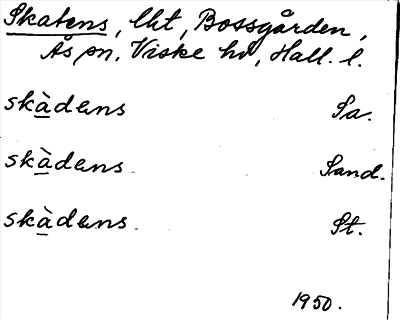 Skatens, lht, Bossgården,
Ås sn, Viske hd, Hall. l.
skàdens Sa.
skàdens Sand.
skàdens St.
1950.